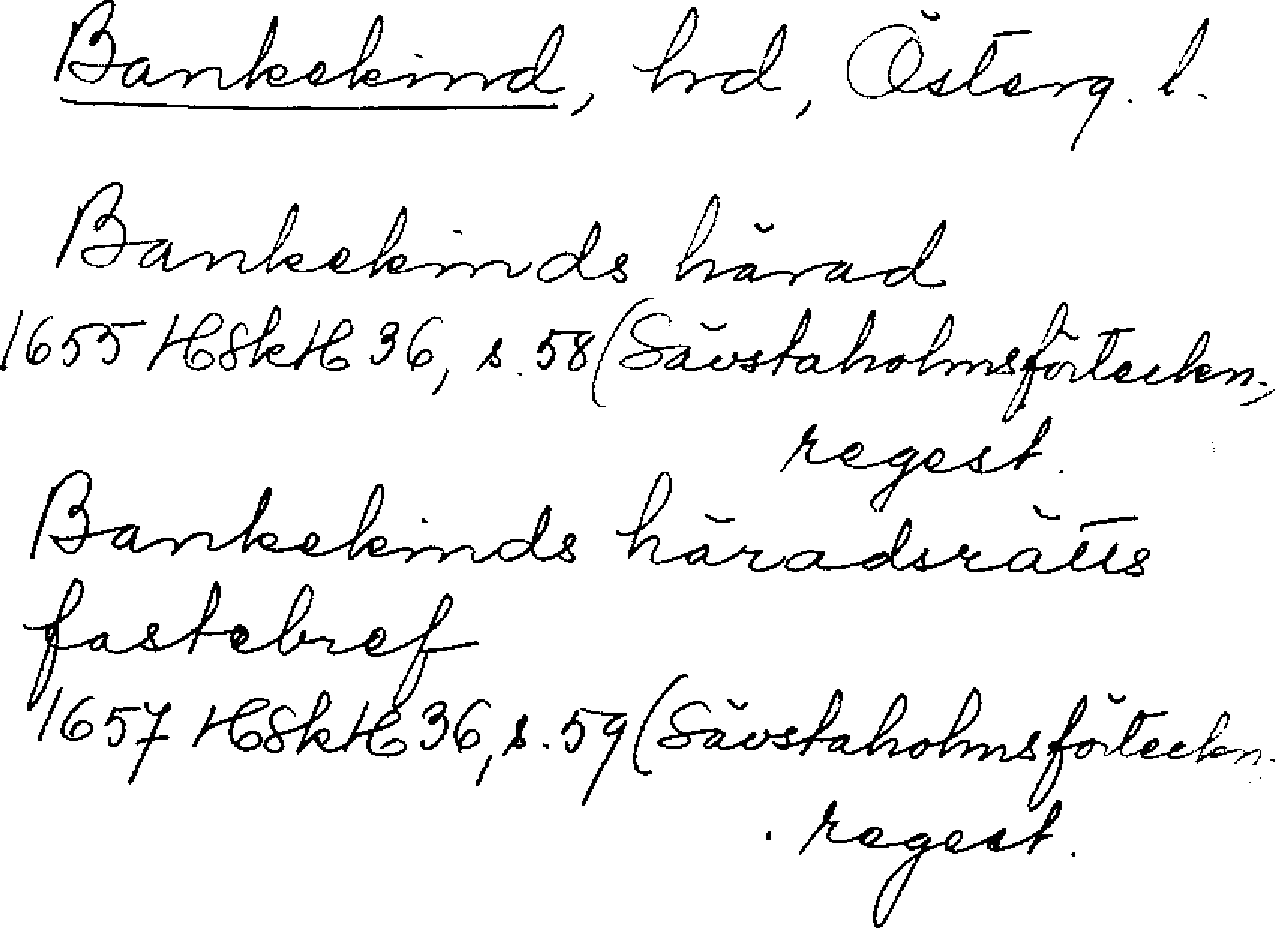 Bankekind, hd, Österg. l.
Bankekinds härad
1655 HSkH 36, s. 58 (Sävstaholmsförteckn.,
regest.
Bankekinds häradsrätts
fastebref
1657 HSkH 36, s. 59 (Sävstaholmsförteckn.
regest.